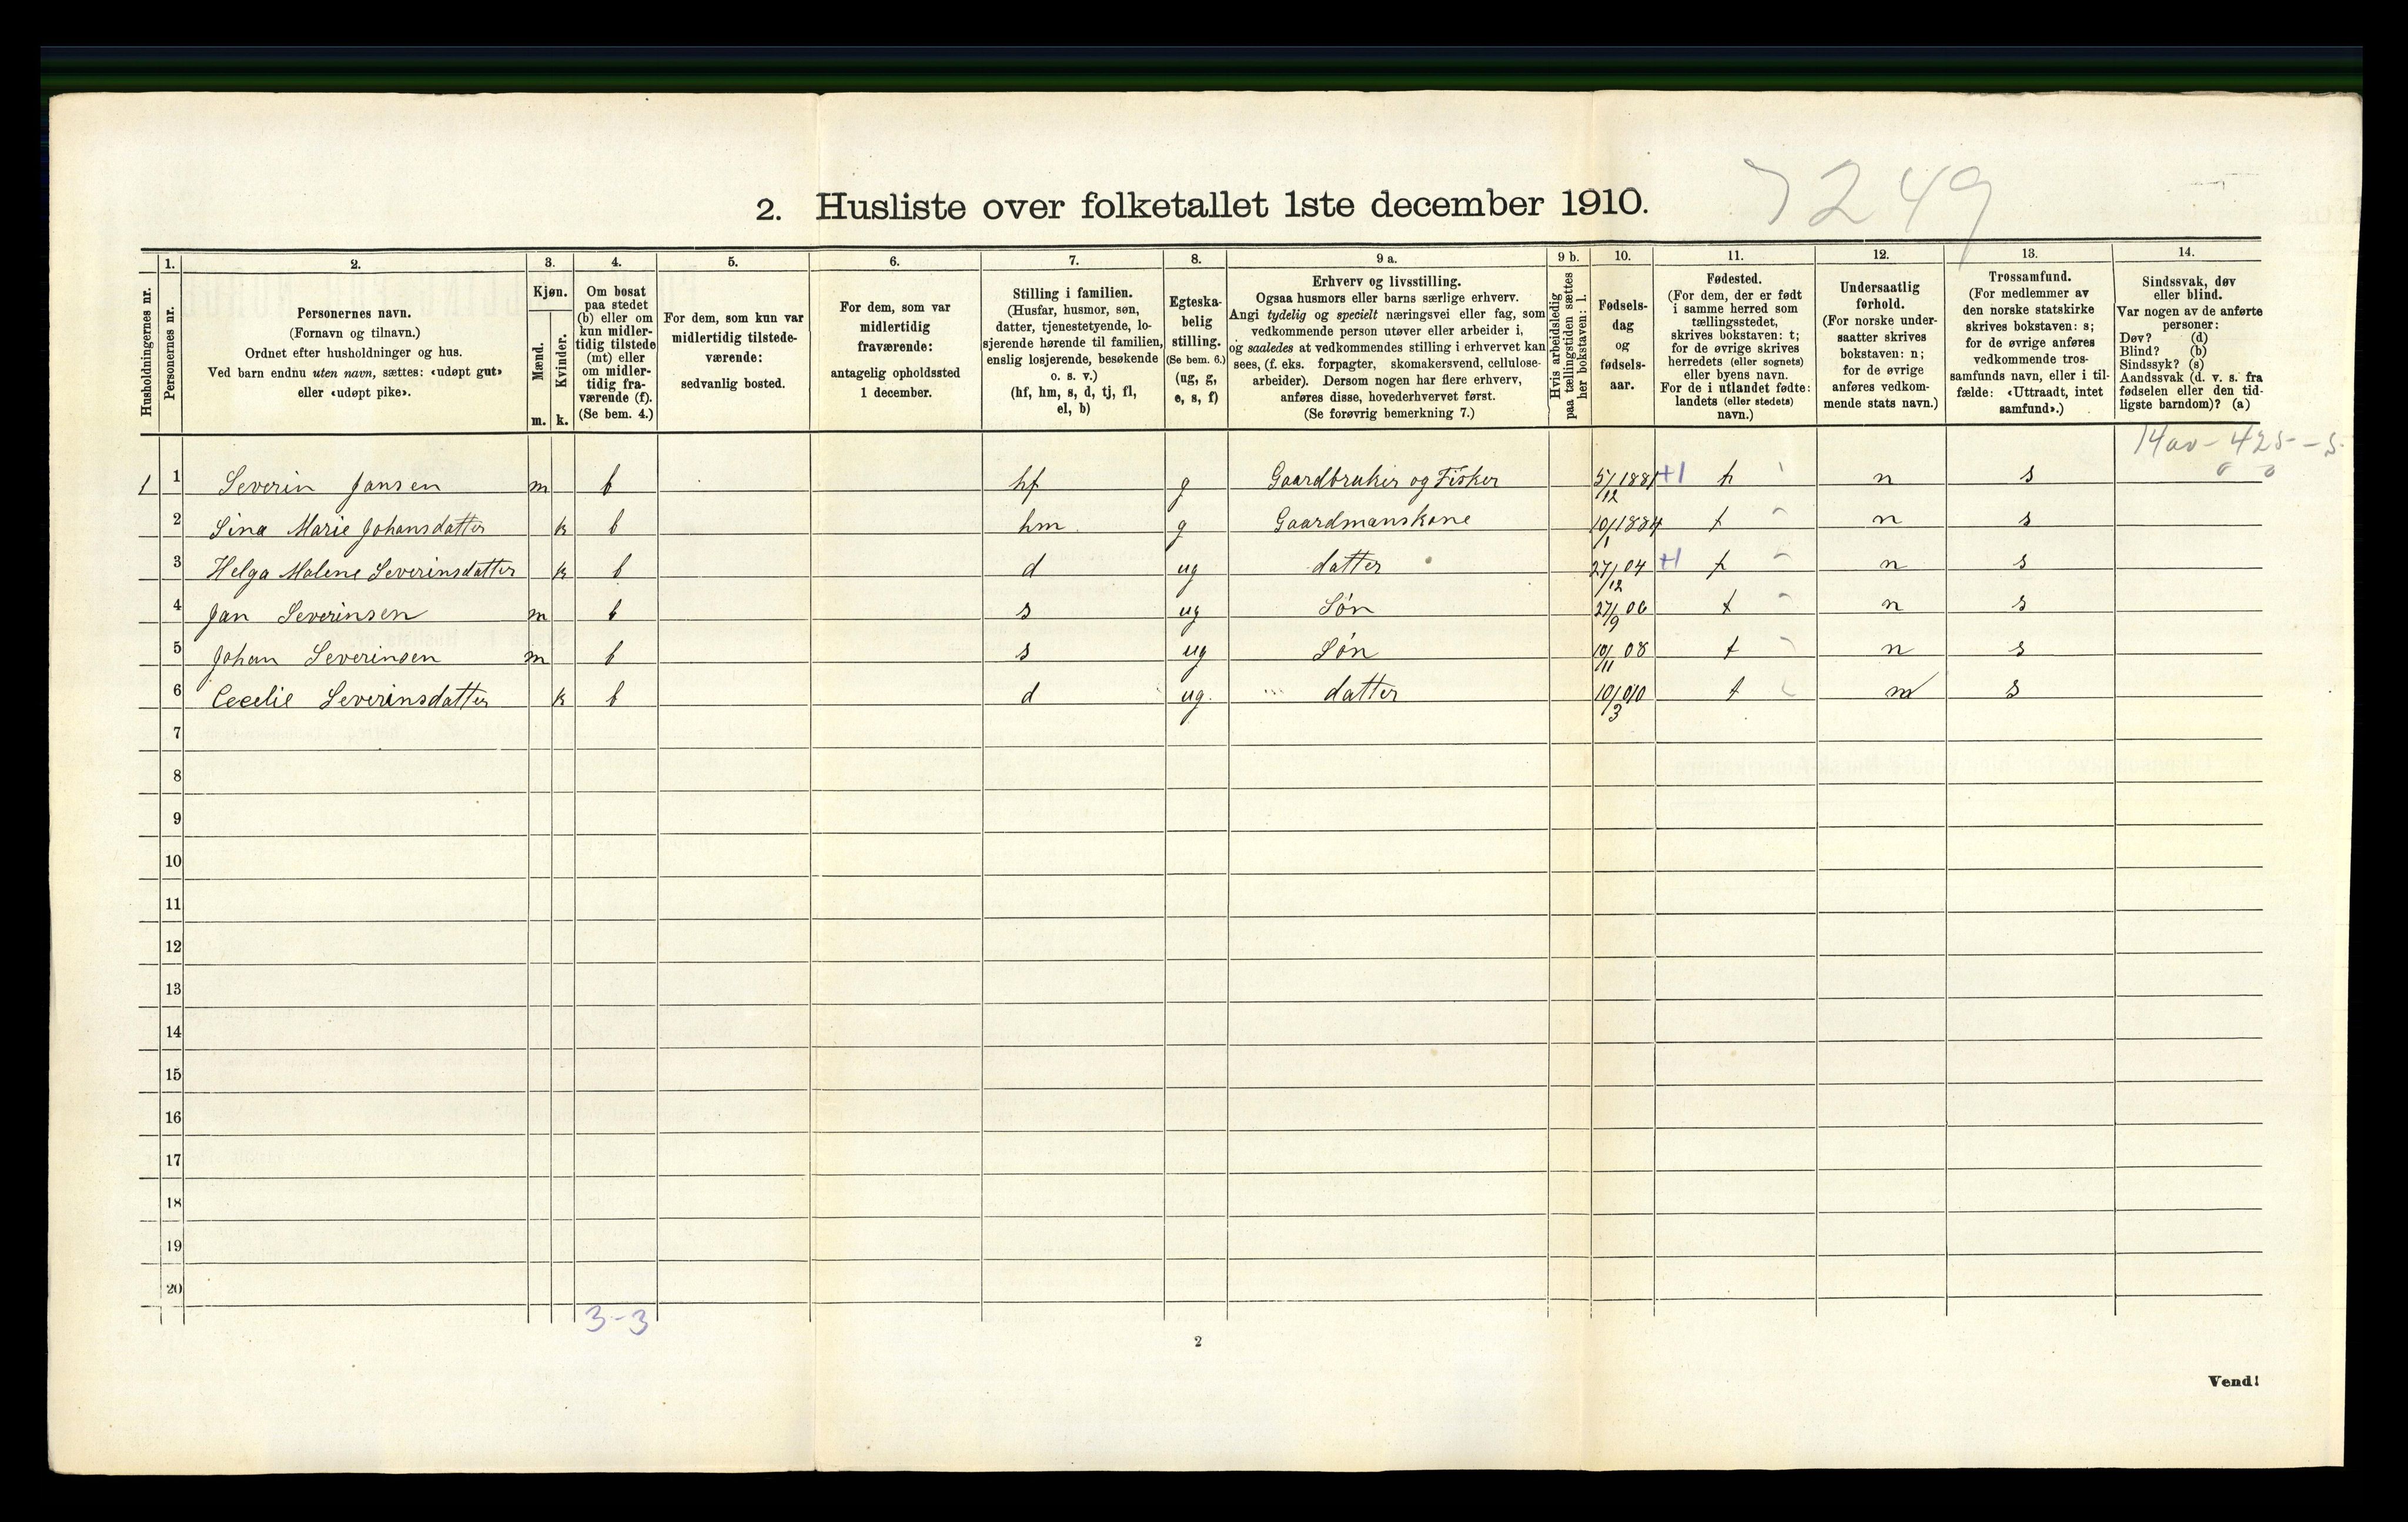 7249
2. Husliste over folketallet 1ste december 1910.
Husholdningernes nr.
1.
Personernes nr.
2.
Personernes navn.
(Fornavn og tilnavn.)
Ordnet efter husholdninger og hus.
Ved barn endnu uten navn, sættes: «udøpt gut»
eller «udøpt pike».
3.
Kjøn.
Mænd.
Kvinder.
m. k.
4.
Om bosat
paa stedet
(b) eller om
kun midler-
tidig tilstede
(mt) eller
om midler-
tidig fra-
værende (f).
(Se bem. 4.)
5.
For dem, som kun var
midlertidig tilstede-
værende:
sedvanlig bosted.
6.
For dem, som var
midlertidig
fraværende:
antagelig opholdssted
1 december.
7.
Stilling i familien.
(Husfar, husmor, søn,
datter, tjenestetyende, lo-
sjerende hørende til familien,
enslig losjerende, besøkende
o. s. v.)
(hf, hm, s, d, tj, fl,
el, b)
8.
Egteska-
belig
stilling.
(Se bem. 6.)
(ug, g,
e, s, f)
9 a.
Erhverv og livsstilling.
Ogsaa husmors eller barns særlige erhverv.
Angi tydelig og specielt næringsvei eller fag, som
vedkommende person utøver eller arbeider i,
og saaledes at vedkommendes stilling i erhvervet kan
sees, (f. eks. forpagter, skomakersvend, cellulose-
arbeider). Dersom nogen har flere erhverv,
anføres disse, hovederhvervet først.
(Se forøvrig bemerkning 7.)
9 b.
Hvis arbeidsledig
paa tællingstiden sættes
her bokstaven: l.
10.
Fødsels-
dag
og
fødsels-
aar.
11.
Fødested.
(For dem, der er født
i samme herred som
tællingsstedet,
skrives bokstaven: t;
for de øvrige skrives
herredets (eller sognets)
eller byens navn.
For de i utlandet fødte:
landets (eller stedets)
navn.)
12.
Undersaatlig
forhold.
(For norske under-
saatter skrives
bokstaven: n;
for de øvrige
anføres vedkom-
mende stats navn.)
13.
Trossamfund.
(For medlemmer av
den norske statskirke
skrives bokstaven: s;
for de øvrige anføres
vedkommende tros-
samfunds navn, eller i til-
fælde: «Uttraadt, intet
samfund».)
14.
Sindssvak, døv
eller blind.
Var nogen av de anførte
personer:
Døv? (d)
Blind? (b)
Sindssyk? (s)
Aandssvak (d. v. s. fra
fødselen eller den tid-
ligste barndom)? (a)
1 1 Severin Jansen m b hf g Gaardbruker og Fisker 5/12 1881 t n s
2 Sina Marie Johansdatter k b hm g Gaardmanskone 10/1 1884 t n s
3 Helga Malene Severinsdatter k b d ug datter 27/12 04 t n s
4 Jan Severinsen m b s ug Søn 27/9 06 t n s
5 Johan Severinsen m b s ug Søn 10/11 08 t n s
6 Cecelie Severinsdatter k b d ug. datter 10/3 010 t n s
7
8
9
10
11
12
13
14
15
16
17
18
19
20
3-3
2
Vend!